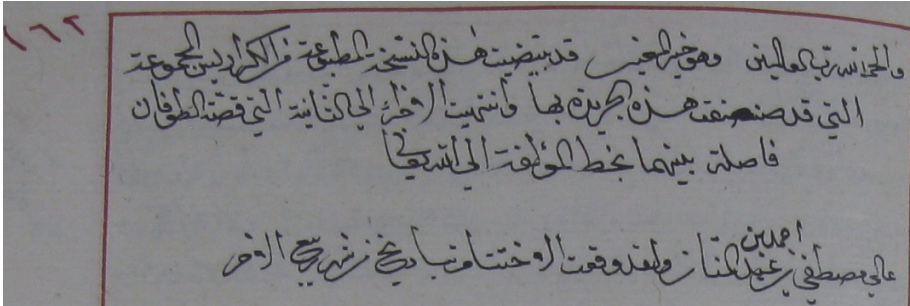 ١٦٢
والحمد لله رب العالمين وهو خير المعين قد بيضت هذه النسخة المطبوعة من الكراريس المجموعة
التي قد صنفت هذه الجريدة بها وانتهيت الاجزاء الى الثانية التي قصة الطوفان
فاصلة بينهما بخط المؤلفة الى الله تعالى
احمد بن
عالي مصطفى بن عبد ولقد وقعت الاختتام بتاريخ من شهر ربيع الاخر